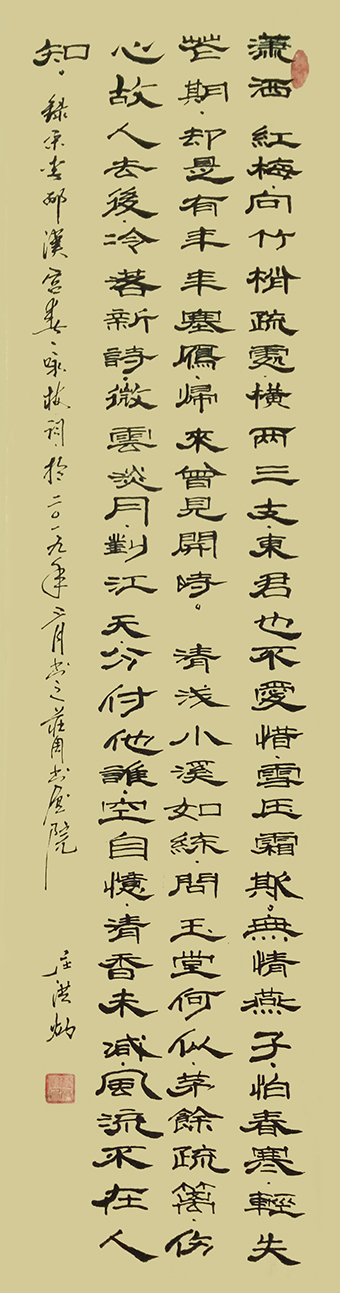 潇洒紅梅·向竹梢疏處橫两三支·東君也不愛惜·雪压霜欺。無情燕子·怕春寒·輕失
花期·却是有年年塞鴈·歸來曾見開時。清浅小溪如練·問玉堂何似·茅餘疏篱·伤
心故人去後·冷著新詩·微雲淡月·對江天·分付他誰·空自憶·清香未减·風流不在人
知。
錄宋李邴漢宮春·咏梅詞於二〇一九年三月书之 书画院
庄洪